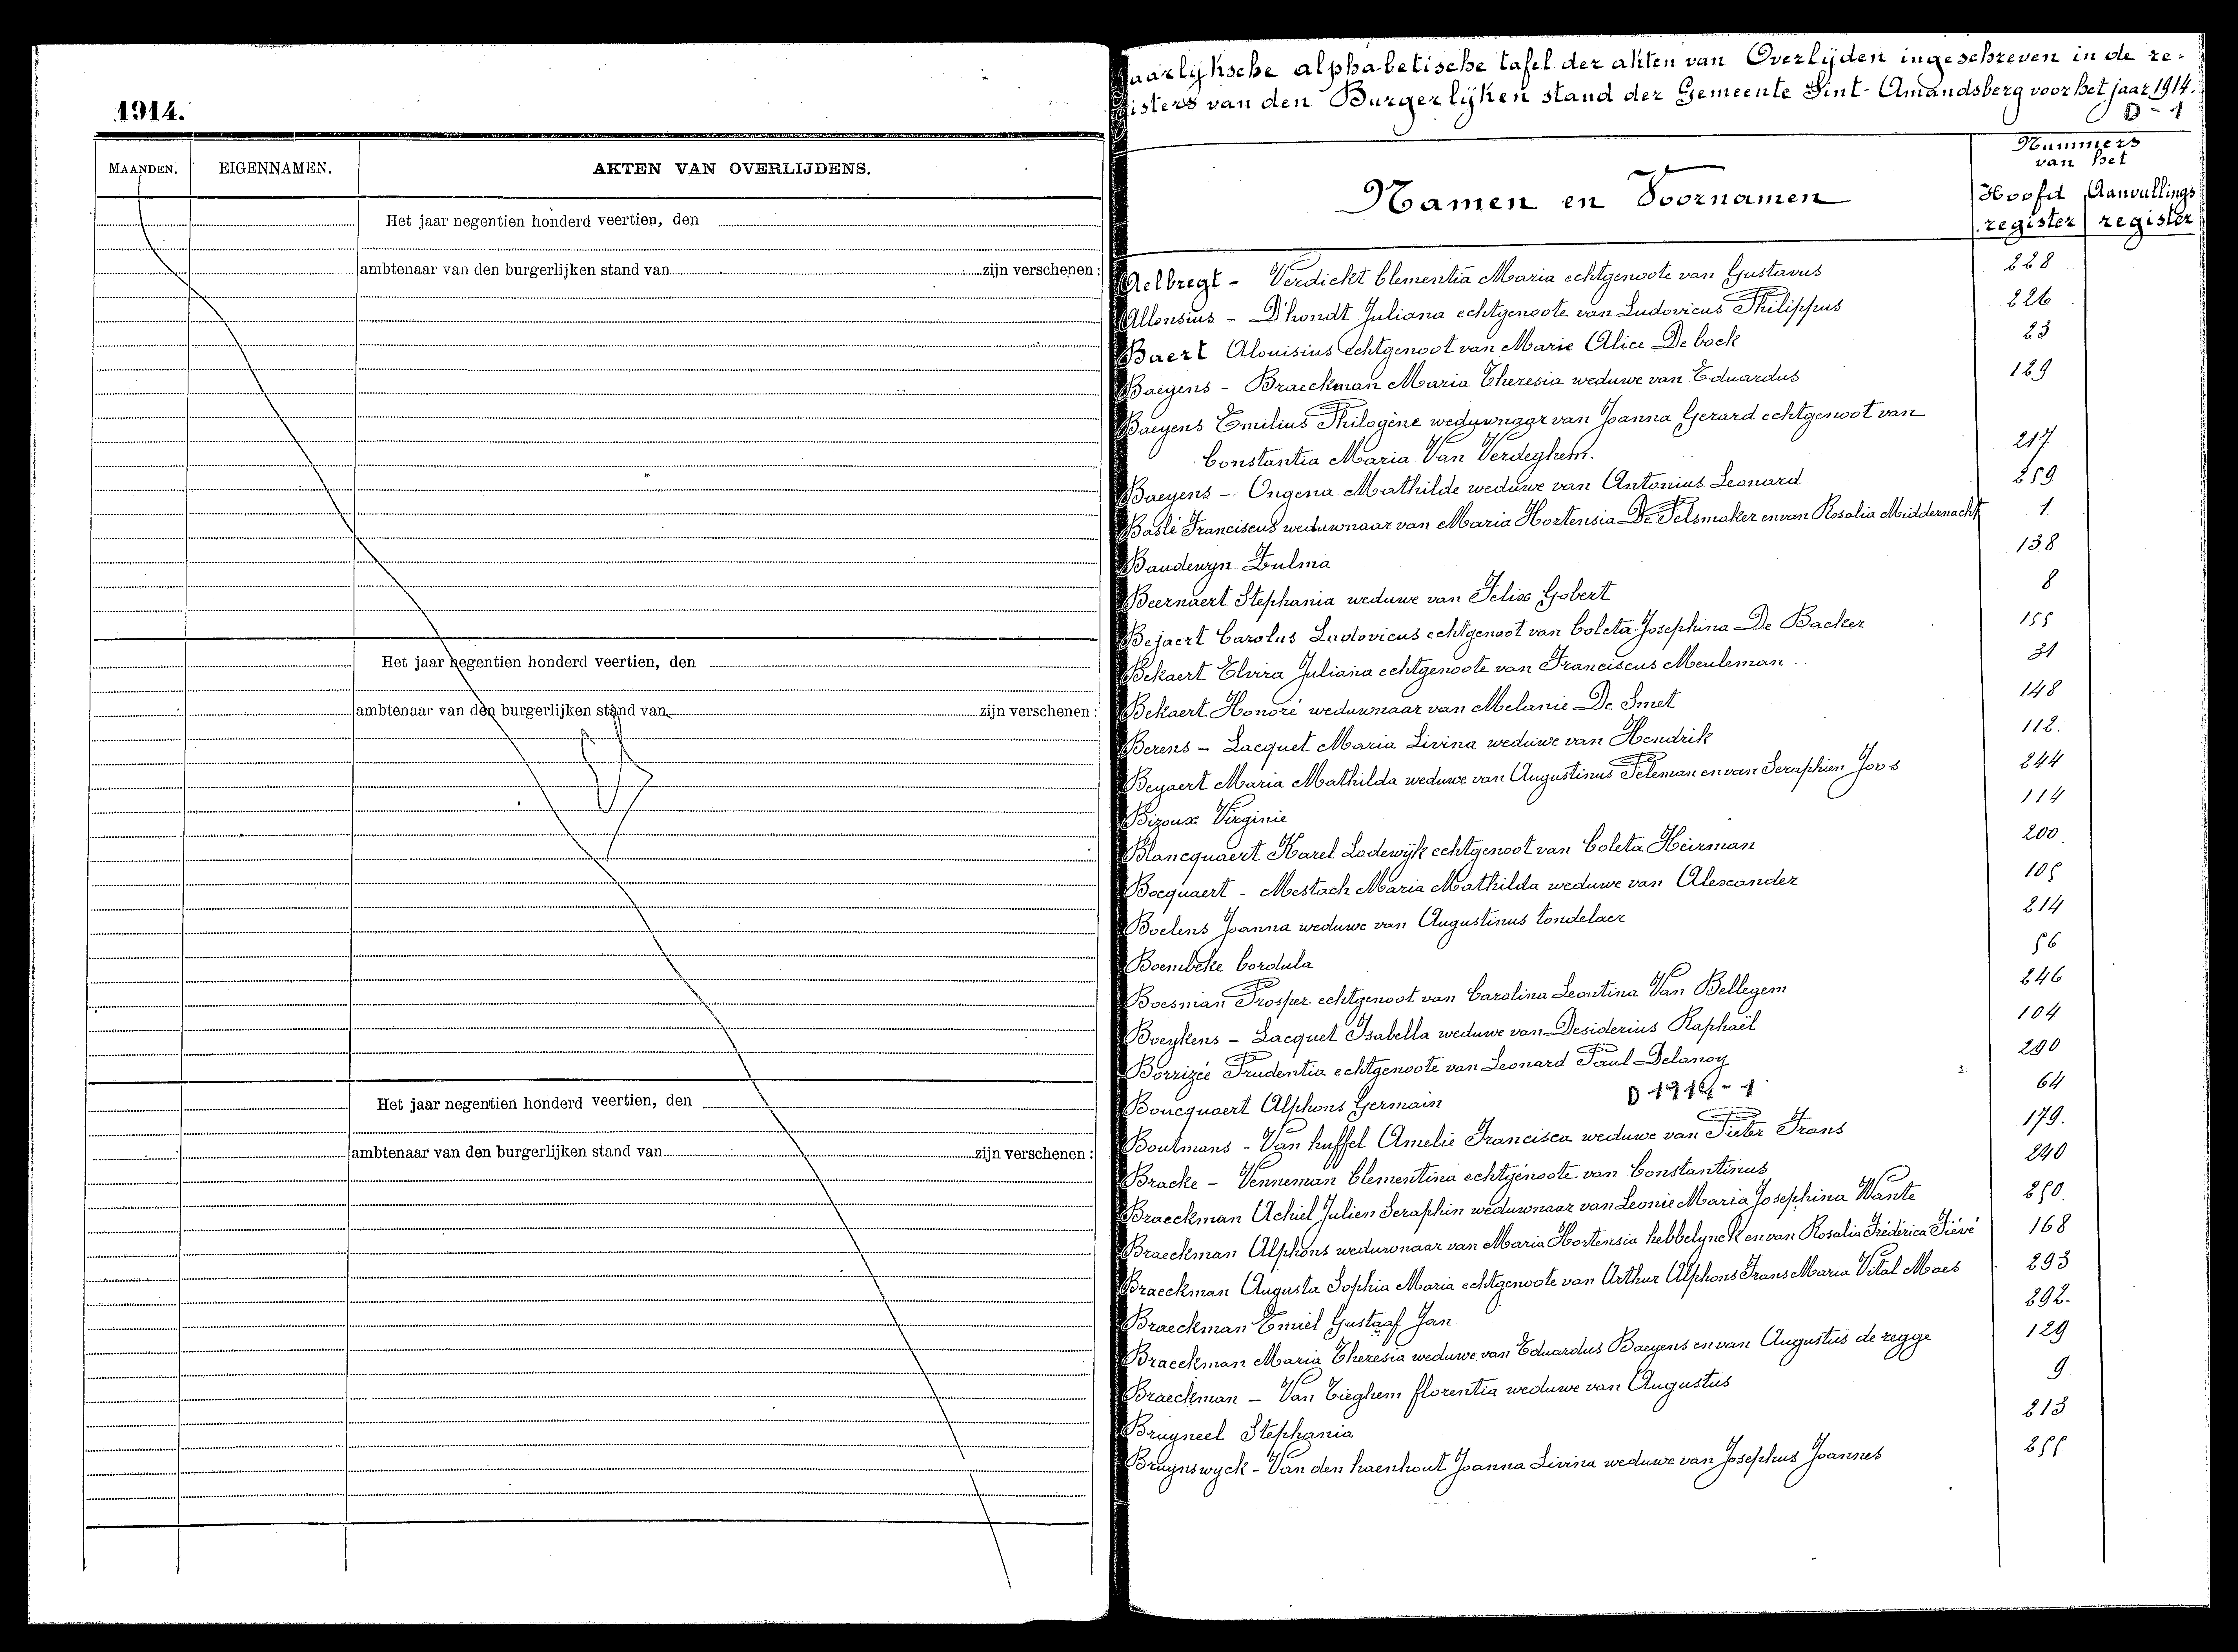 1914.
MAANDEN. EIGENNAMEN. AKTEN VAN OVERLIJDENS.
Het jaar negentien honderd veertien, den
ambtenaar van den burgerlijken stand van zijn verschenen :
Het jaar negentien honderd veertien, den
ambtenaar van den burgerlijken stand van zijn verschenen :
Het jaar negentien honderd veertien, den
ambtenaar van den burgerlijken stand van zijn verschenen :
Jaarlijksche alphabetische tafel der akten van Overlijden ingeschreven in de re-
gisters van den Burgerlijken stand der Gemeente Sint-Amandsberg voor het jaar 1914.
D - 1
Nummers
van het
Namen en Voornamen
Hoofd Aanvullings
register register
Aelbregt - Verdickt Clementia Maria echtgenoote van Gustavus 228
Allonsius - D'hondt Juliana echtgenoote van Ludovicus Philippus 226
Baert Alouisius echtgenoot van Marie Alice De bock 23
Baeyens - Braeckman Maria Theresia weduwe van Eduardus 129
Baeyens Emilius Philogène weduwnaar van Joanna Gerard echtgenoot van
Constantia Maria Van Verdeghem. 217
Baeyens - Ongena Mathilde weduwe van Antonius Leonard 259
Baslé Franciscus weduwnaar van Maria Hortensia De Pelsmaker en van Rosalia Middernacht 1
Baudewyn Zulma 138
Beernaert Stephania weduwe van Felix Gobert 8
Bejaert Carolus Ludovicus echtgenoot van Coleta Josephina De Backer 155
Bekaert Elvira Juliana echtgenoote van Franciscus Meuleman 31
Bekaert Honoré weduwnaar van Melanie De Smet 148
Berens - Lacquet Maria Livina weduwe van Hendrik 112.
Beyaert Maria Mathilda weduwe van Augustinus Peleman en van Seraphien Joos 244
Bizoux Virginie 114
Blancquaert Karel Lodewijk echtgenoot van Coleta Heirman 200
Bocquaert - Mestach Maria Mathilda weduwe van Alexander 105
Boelens Joanna weduwe van Augustinus Tondelaer 214
Boembeke Cordula 56
Boesman Prosper echtgenoot van Carolina Leontina Van Bellegem 246
Boeykens - Lacquet Isabella weduwe van Desiderius Raphaël 104
Borrizée Prudentia echtgenoote van Leonard Paul Delanoy 290
Boucquaert Alphons Germain 64
D 1914 - 1
Boutmans - Van huffel Amelie Francisca weduwe van Pieter Frans 179.
Bracke - Venneman Clementina echtgenoote van Constantinus 240
Braeckman Achiel Julien Seraphin weduwnaar van Leonie Maria Josephina Wante 250.
Braeckman Alphons weduwnaar van Maria Hortensia hebbelynck en van Rosalia Fréderica Fiévé 168
Braeckman Augusta Sophia Maria echtgenoote van Arthur Alphons Frans Maria Vital Maes 293
Braeckman Emiel Gustaaf Jan 292.
Braeckman Maria Theresia weduwe van Eduardus Baeyens en van Augustus de regge 129
Braeckman - Van Tieghem florentia weduwe van Augustus 9
Bruyneel Stephania 213
Bruynswyck - Van den haenhout Joanna Livina weduwe van Josephus Joannes 255